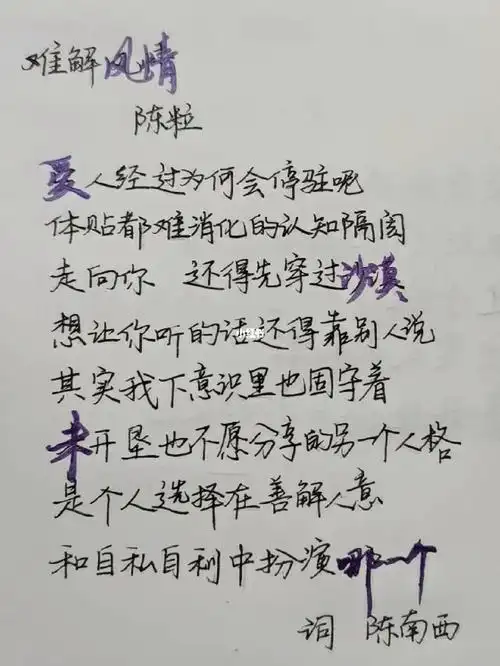 难解风情
陈粒
爱人经过为何会停驻呢
体贴都难消化的认知隔阂
走向你 还得先穿过沙漠
想让你听的话还得靠别人说
其实我下意识里也固守着
未开垦也不愿分享的另一个人格
是个人选择在善解人意
和自私自利中扮演哪一个
词 陈南西
小红书